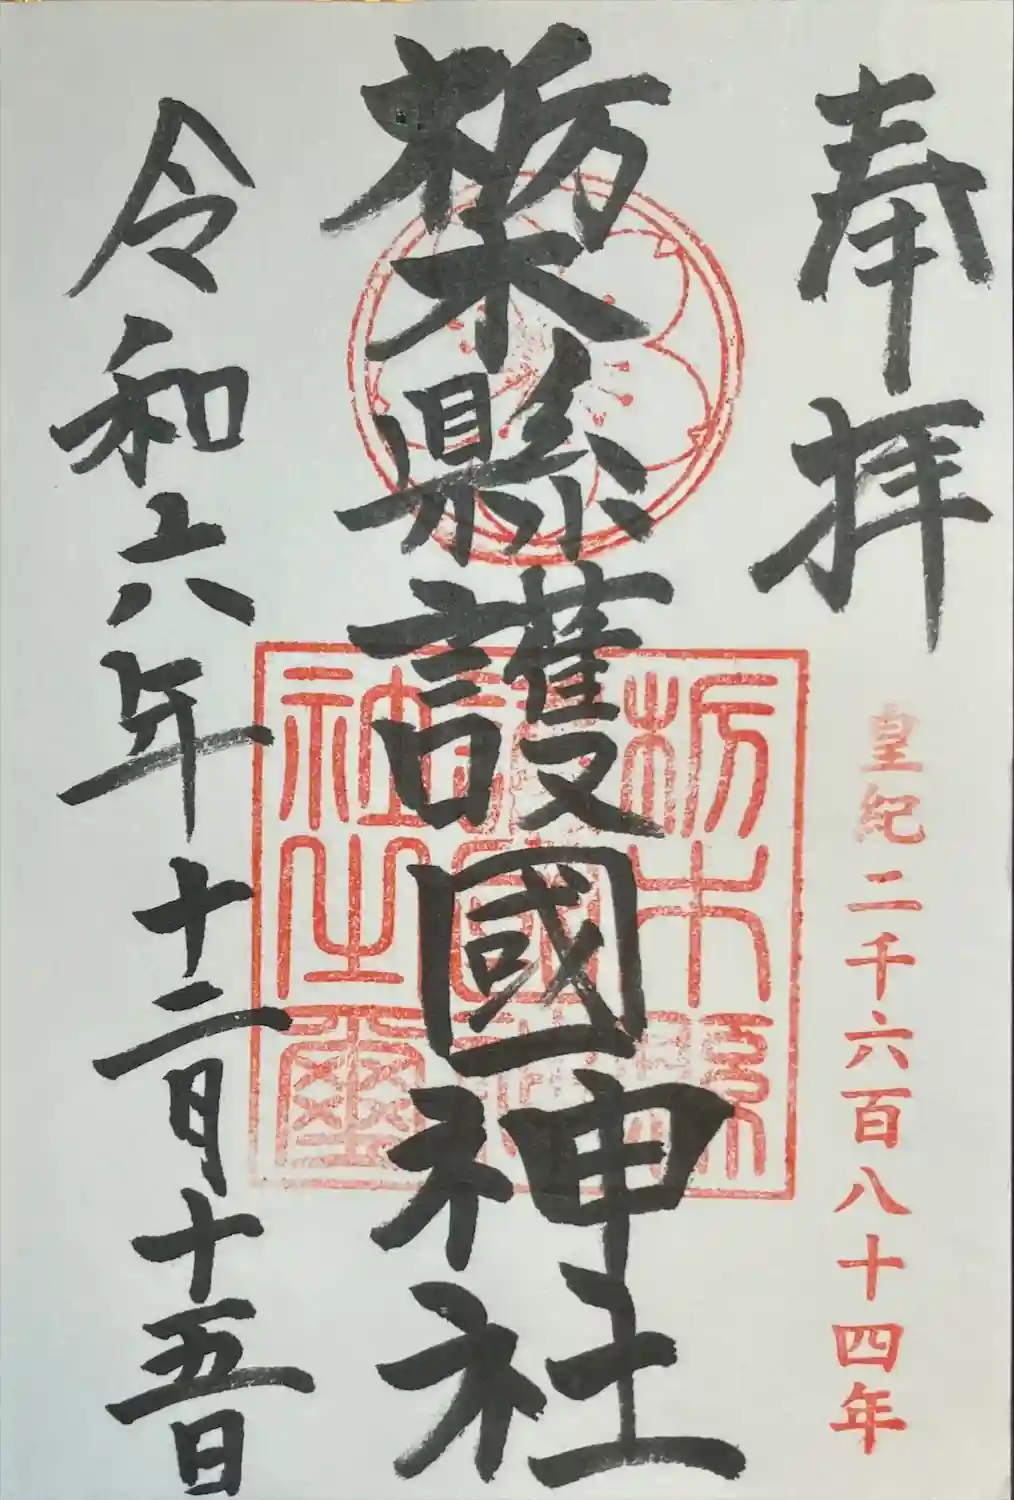 奉拝
皇紀二千六百八十四年
栃木縣護國神社
栃木縣
護國神
社之璽
令和六年十二月十五日